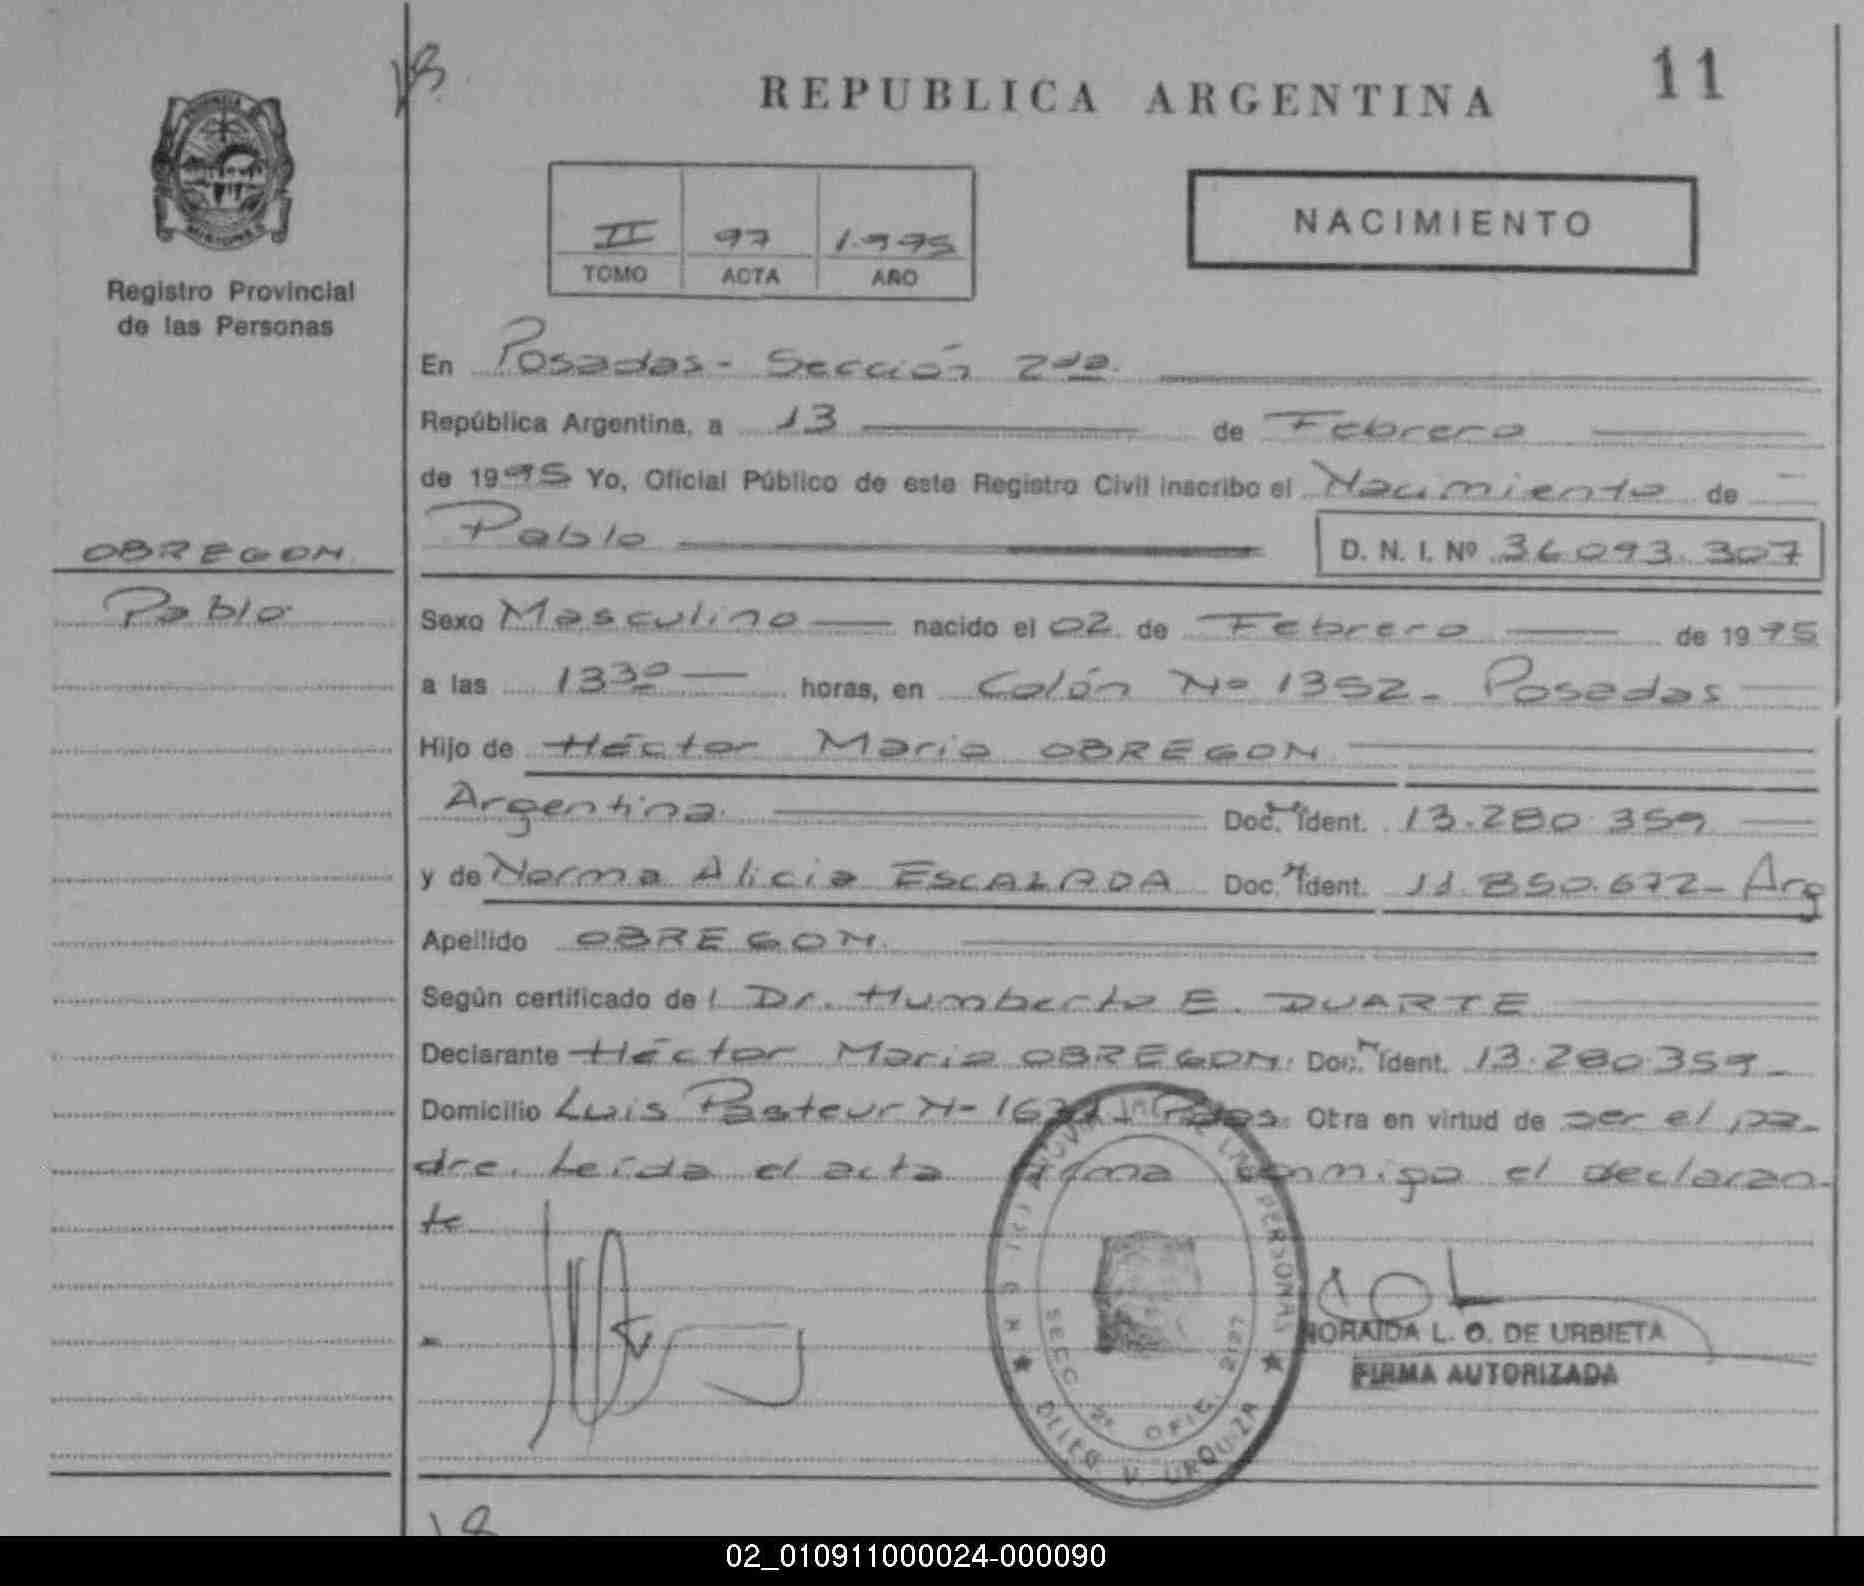 REPUBLICA ARGENTINA
11
PROVINCIA
MISIONES
Registro Provincial
de las Personas
II 97 1.995
TOMO ACTA AÑO
NACIMIENTO
En Posadas - Sección 2da.
República Argentina, a 13 de Febrero
de 1995 Yo, Oficial Público de este Registro Civil inscribo el Nacimiento de
OBREGON
Pablo
Pablo
D. N. I. Nº 36.093.307
Sexo Masculino nacido el 02 de Febrero de 1995
a las 13 30 horas, en Colón Nº 1352 - Posadas
Hijo de Héctor Mario OBREGON
Argentina. Doc. Ident. 13.280.359
y de Norma Alicia ESCALADA Doc. Ident. 11.850.672 - Arg
Apellido OBREGON.
Según certificado de l Dr. Humberto E. DUARTE
Declarante Héctor Mario OBREGON. Doc. Ident. 13.280.359 -
Domicilio Luis Pasteur Nº Pdas. Otra en virtud de ser el pa-
dre. Leída el acta firma conmigo el declaran-
te
PERSONAS
SECC. 2ª OFIC. 2107
DLLEG. V. URQUIZA
NORAIDA L. O. DE URBIETA
FIRMA AUTORIZADA
18
02_010911000024-000090